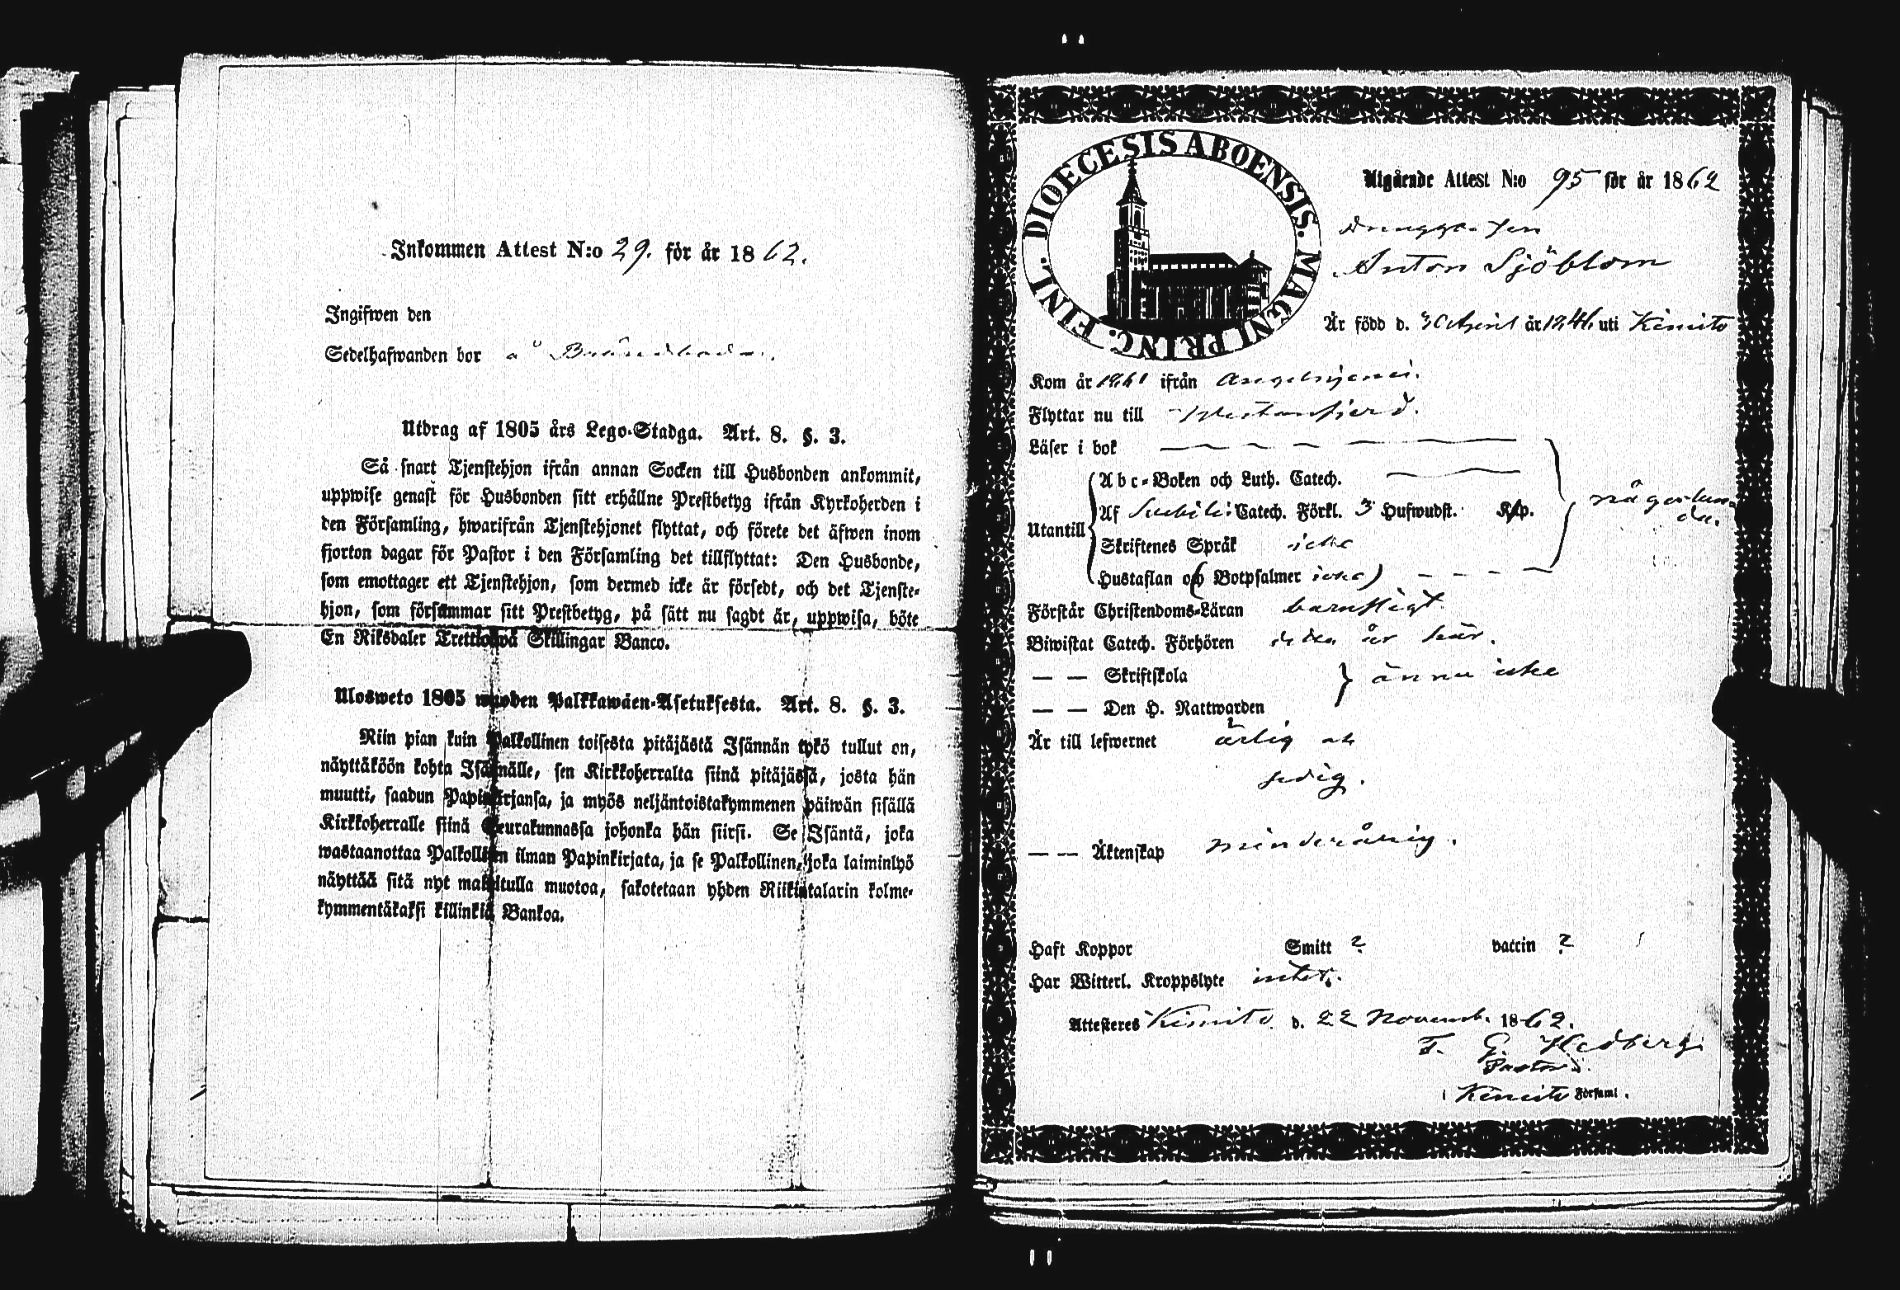 Inkommen Attest N:o 29. för år 1862.
Ingifwen den
Sedelhafwanden bor å
Utdrag af 1805 års Lego-Stadga. Art. 8. §. 3.
Så snart Tjenstehjon ifrån annan Socken till Husbonden ankommit,
uppwise genast för Husbonden sitt erhållne Prestbetyg ifrån Kyrkoherden i
den Församling, hwarifrån Tjenstehjonet flyttat, och förete det äfwen inom
fjorton dagar för Pastor i den Församling det tillflyttat: Den Husbonde,
som emottager ett Tjenstehjon, som dermed icke är försedt, och det Tjenste-
hjon, som försummar sitt Prestbetyg, på sätt nu sagdt är, uppwisa, böte
En Riksdaler Trettiotwå Skillingar Banco.
Ulosweto 1805 wuoden Palkkawäen-Asetuksesta. Art. 8. §. 3.
Niin pian kuin Palkollinen toisesta pitäjästä Isännän tykö tullut on,
näyttäköön kohta Isännälle, sen Kirkkoherralta siinä pitäjässä, josta hän
muutti, saadun Papinkirjansa, ja myös neljäntoistakymmenen päiwän sisällä
Kirkkoherralle siinä Seurakunnassa johonka hän siirsi. Se Isäntä, joka
wastaanottaa Palkollisen ilman Papinkirjata, ja se Palkollinen, joka laiminlyö
näyttää sitä nyt mainitulla muotoa, sakotetaan yhden Riikintalarin kolme-
kymmentäkaksi killinkiä Bankoa.
DIOECESIS ABOENSIS. MAGNI PRINC. FINL.
Utgående Attest N:o 95 för år 1862
Drenggossen
Anton Sjöblom
Är född d. 30 April år 1846 uti Kimito
Kom år 1861 ifrån
Flyttar nu till Westanfjerd.
Läser i bok
Abc-Boken och Luth. Catech.
Utantill
Af Svebili: Catech. Förkl. 3 Hufwudst. Kap.
någorlunda.
Skriftenes Språk icke
Hustaflan och Botpsalmer icke
Förstår Christendoms-Läran barnsligt
Biwistat Catech. Förhören detta år här.
— — Skriftskola
ännu icke
— — Den H. Nattwarden
Är till lefwernet ärlig och
sedig.
— — Äktenskap minderårig.
Haft Koppor Smitt ? vaccin ?
Har Witterl. Kroppslyte intet.
Attesteres Kimito d. 22 Novemb. 1862.
F. G. Hedberg
Pastor
i Kimito Församl.